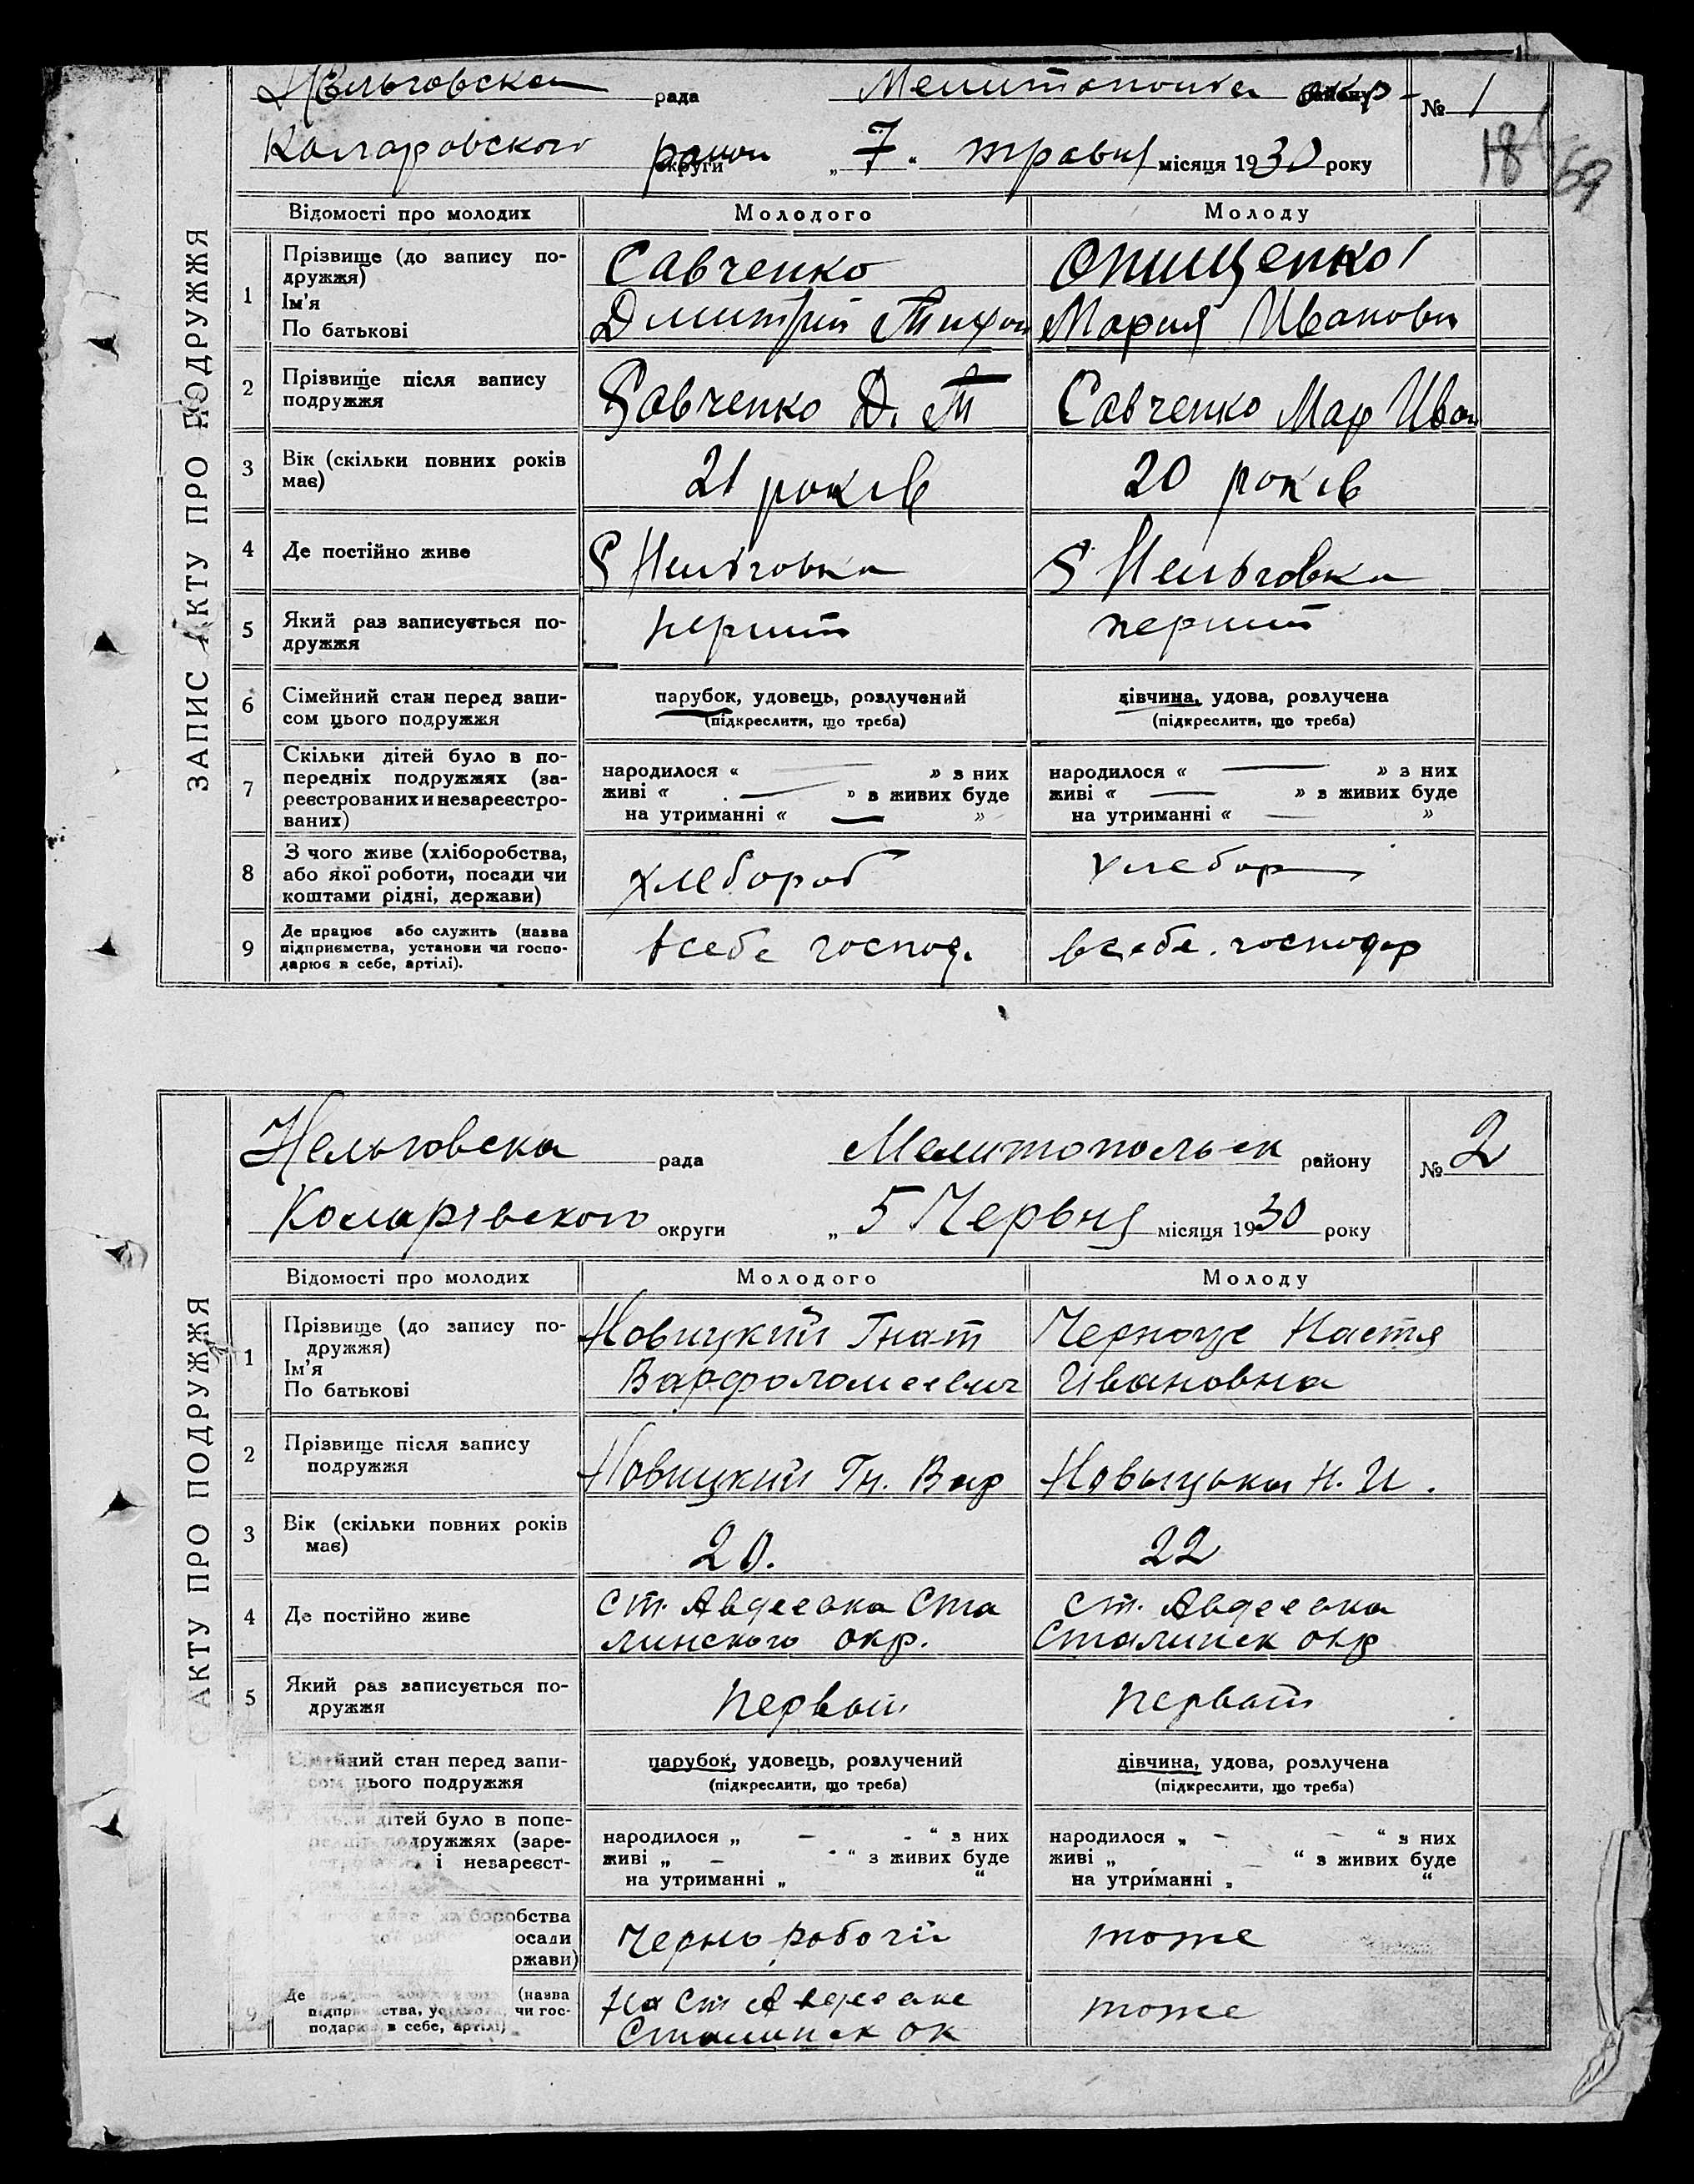 Нельговска рада Мелитопольск окр № 1
Коларовского район округи „ 7 “ травня місяця 1930 року
18 69
ЗАПИС АКТУ ПРО ПОДРУЖЖЯ
Відомості про молодих Молодого Молоду
1 Прізвище (до запису по-
дружжя)
Ім’я
По батькові
Савченко
Дмитрій Тихон
Онищенко
Мария Ивановн
2 Прізвище після запису
подружжя
Савченко Д. Т
Савченко Мар Иван
3 Вік (скільки повних років
має)
21 років
20 років
4 Де постійно живе
С Нельговка
С Нельговка
5 Який раз записується по-
дружжя
перший
перший
6 Сімейний стан перед запи-
сом цього подружжя
парубок, удовець, розлучений
(підкреслити, що треба)
дівчина, удова, розлучена
(підкреслити, що треба)
7 Скільки дітей було в по-
передніх подружжях (за-
реєстрованих и незареєстро-
ваних)
народилося « — » з них
живі « — » з живих буде
на утриманні « — »
народилося « — » з них
живі « — » з живих буде
на утриманні « — »
8 З чого живе (хліборобства,
або якої роботи, посади чи
коштами рідні, держави)
хлебороб
хлебор
9 Де працює або служить (назва
підприємства, установи чи госпо-
дарює в себе, артілі).
в себе господ.
в себе. господар
Нельговска рада Мелитопольск району № 2
Коларовского округи „ 5 Червня місяця 1930 року
АКТУ ПРО ПОДРУЖЖЯ
Відомості про молодих Молодого Молоду
1 Прізвище (до запису по-
дружжя)
Ім’я
По батькові
Новицкий Гнат
Варфоломеевич
Настя
Ивановна
2 Прізвище після запису
подружжя
Новицкий Гн. Вар
Новыцька Н. И.
3 Вік (скільки повних років
має)
20.
22
4 Де постійно живе
ст. Авдеевка Ста
линского окр.
ст. Авдеевка
Сталинск окр
5 Який раз записується по-
дружжя
первый
первый
Сімейний стан перед запи-
сом цього подружжя
парубок, удовець, розлучений
(підкреслити, що треба)
дівчина, удова, розлучена
(підкреслити, що треба)
дітей було в попе-
подружжях (заре-
і незареєст-
народилося „ — - “ з них
живі „ — - “ з живих буде
на утриманні „ “
народилося „ — — “ з них
живі „ - — “ з живих буде
на утриманні „ “
боробства
осади
ржави)
Чернь робочій
тоже
9 Де (назва
чи гос-
подарює в себе, артілі)
На Ст Авдеевке
Сталинск ок
тоже